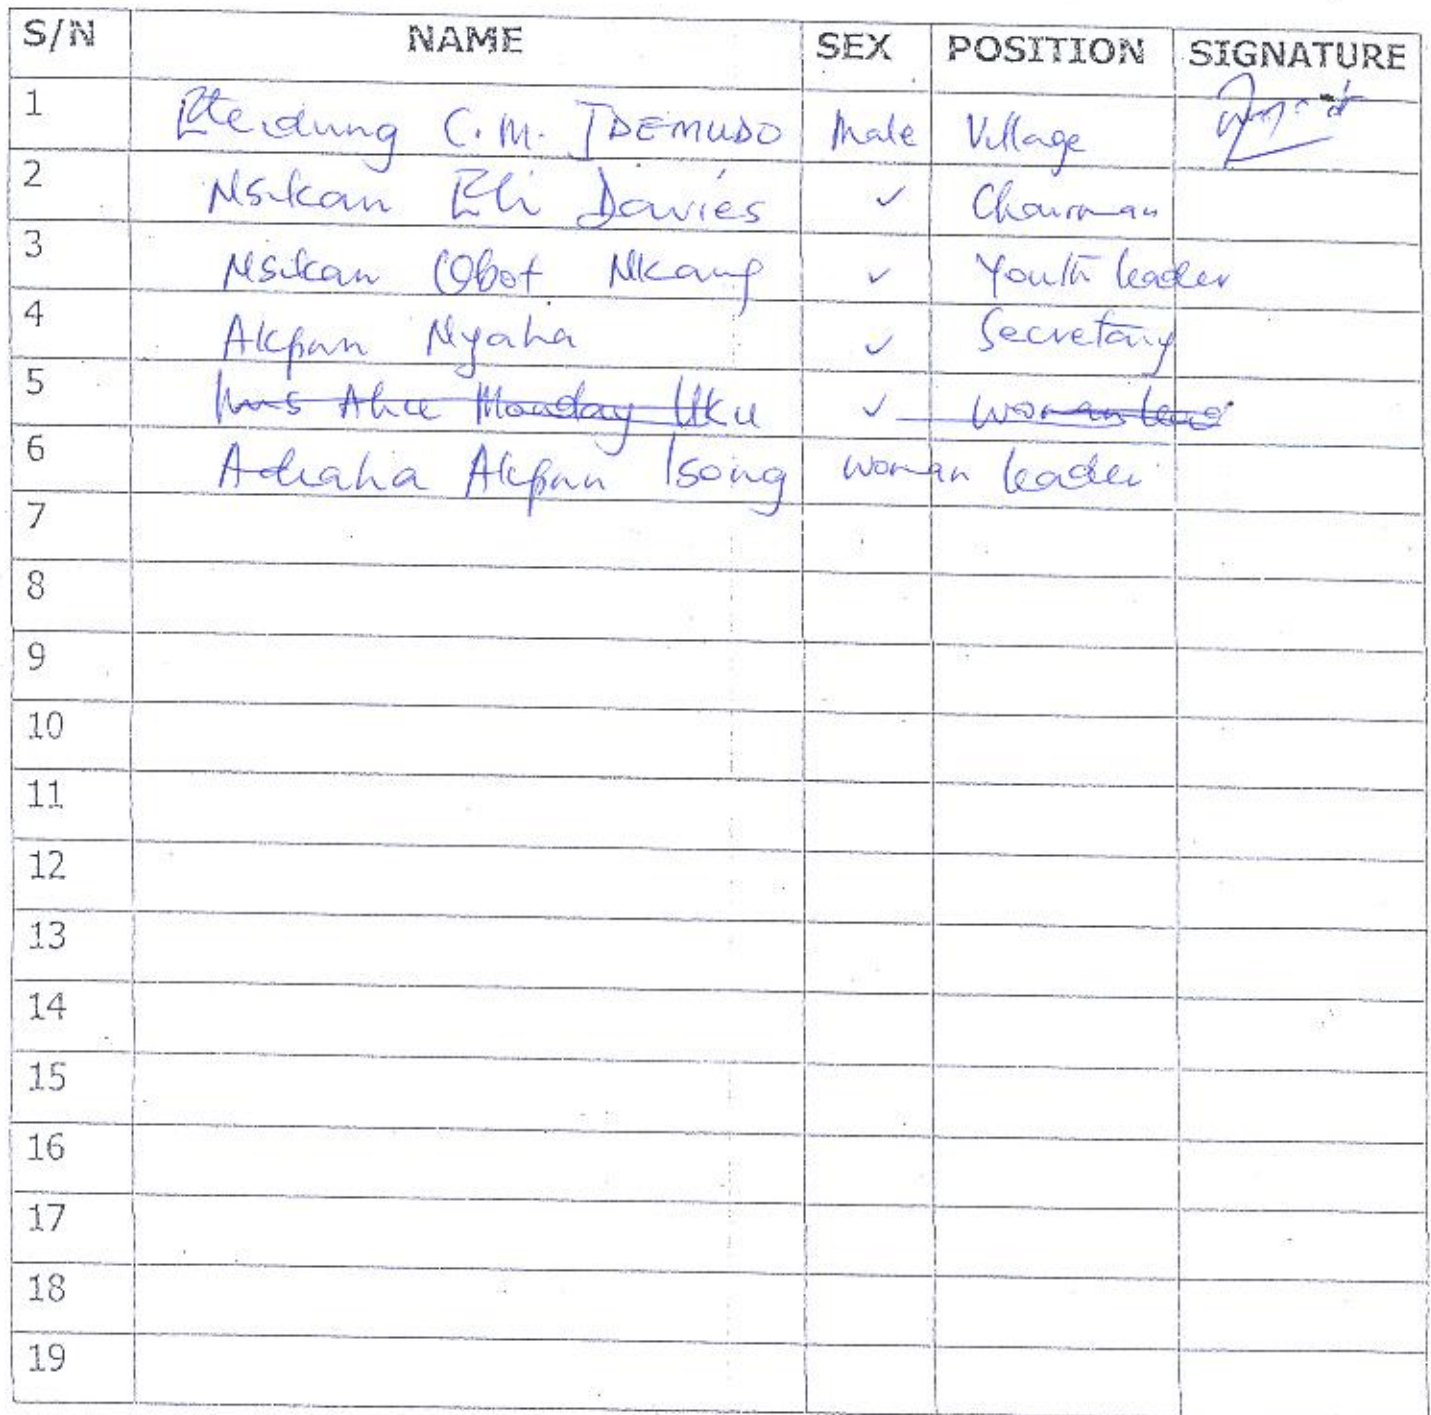 S/N NAME SEX POSITION SIGNATURE
1 Eteidung C.M. IDEMUDO Male Village
2 Nsikan Eli Davies ✓ Chairman
3 Nsikan Obot Nkang ✓ Youth leader
4 Akpan Nyaha ✓ Secretary
5 Alice Monday Uku ✓ woman
6 Adiaha Akpan Isong woman leader
7
8
9
10
11
12
13
14
15
16
17
18
19